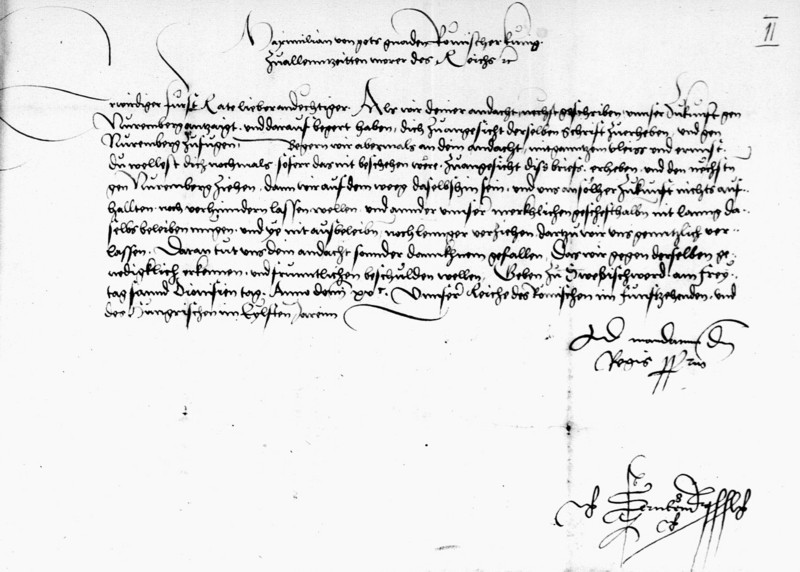 11
Maximilian von gots gnaden Romischer kunig
zuallenntzeitten merer des Reichs etc
wirdiger furst Rate lieber andechtiger. Als wir deiner andacht nechst geschriben, unnser zukunfft gen
Nuremberg antzaigt, und darauf begert haben, dich zuangesicht derselben schrift zuerheben, und gen
Nuremberg zufuegen. Begern wir abermals an dein andacht, mit gantzem vleiss und ernnst.
du wellest dich nochmals, soferr das nit beschehen were, zuangesicht diss briefs, erheben, und den nechsten
gen Nuremberg ziehen, dann wir auf dem weeg daselbshin sein, und uns an solher zukunfft nichts auf-
hallten, noch verhinndern lassen wellen, und annder unnser mercklichen gescheffthalben nit lanng da-
selbs beleiben mugen, und ye nit ausbeleiben, noch lennger verziehen, dartzu wir uns genntzlich ver-
lassen. Daran tut uns dein andacht sonnder dannckhnem gefallen, Das wir gegen derselben ge-
nediglich erkennen, und frunntlichen beschulden wellen. Geben zu Swebischwerd, am Frey-
tag sannd Dionisien tag, Anno domini xvc. Unnserer Reiche des Romischen im funfftzehenden, und
des Hungrischen im Eylfften Jarenn
Ad mandatum dni
Regis pprium